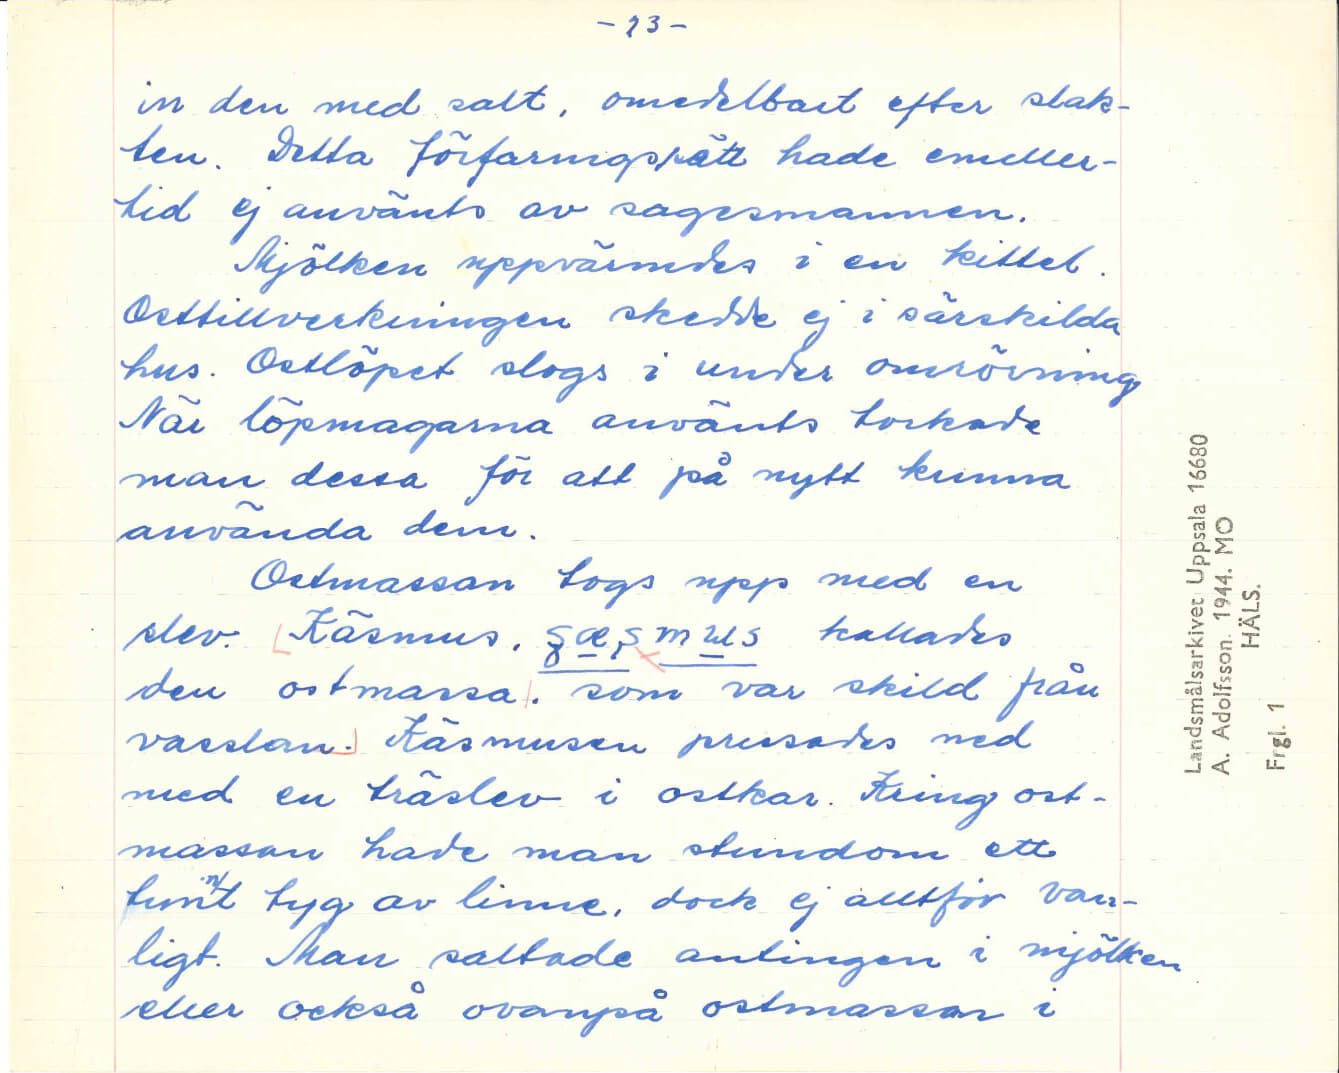 - 23 -
in den med salt, omedelbart efter slak-
ten. Detta förfaringssätt hade emeller-
tid ej använts av sagesmannen.
Mjölken uppvärmdes i en kittel.
Osttillverkningen skedde ej i särskilda
hus. Ostlöpet slogs i under omrörning
När löpmagarna använts torkade
man dessa för att på nytt kunna
använda dem.
Ostmassan togs upp med en
slev. Käsmus, kallades
den ostmassa, som var skild från
vasslan. Käsmusen pressades ned
med en träslev i ostkar. Kring ost-
massan hade man stundom ett
tunnt tyg av linne, dock ej alltför van-
ligt. Man saltade antingen i mjölken
eller också ovanpå ostmassan i
Landsmålsarkivet Uppsala 16680
A. Adolfsson. 1944. MO
HÄLS.
Frgl. 1